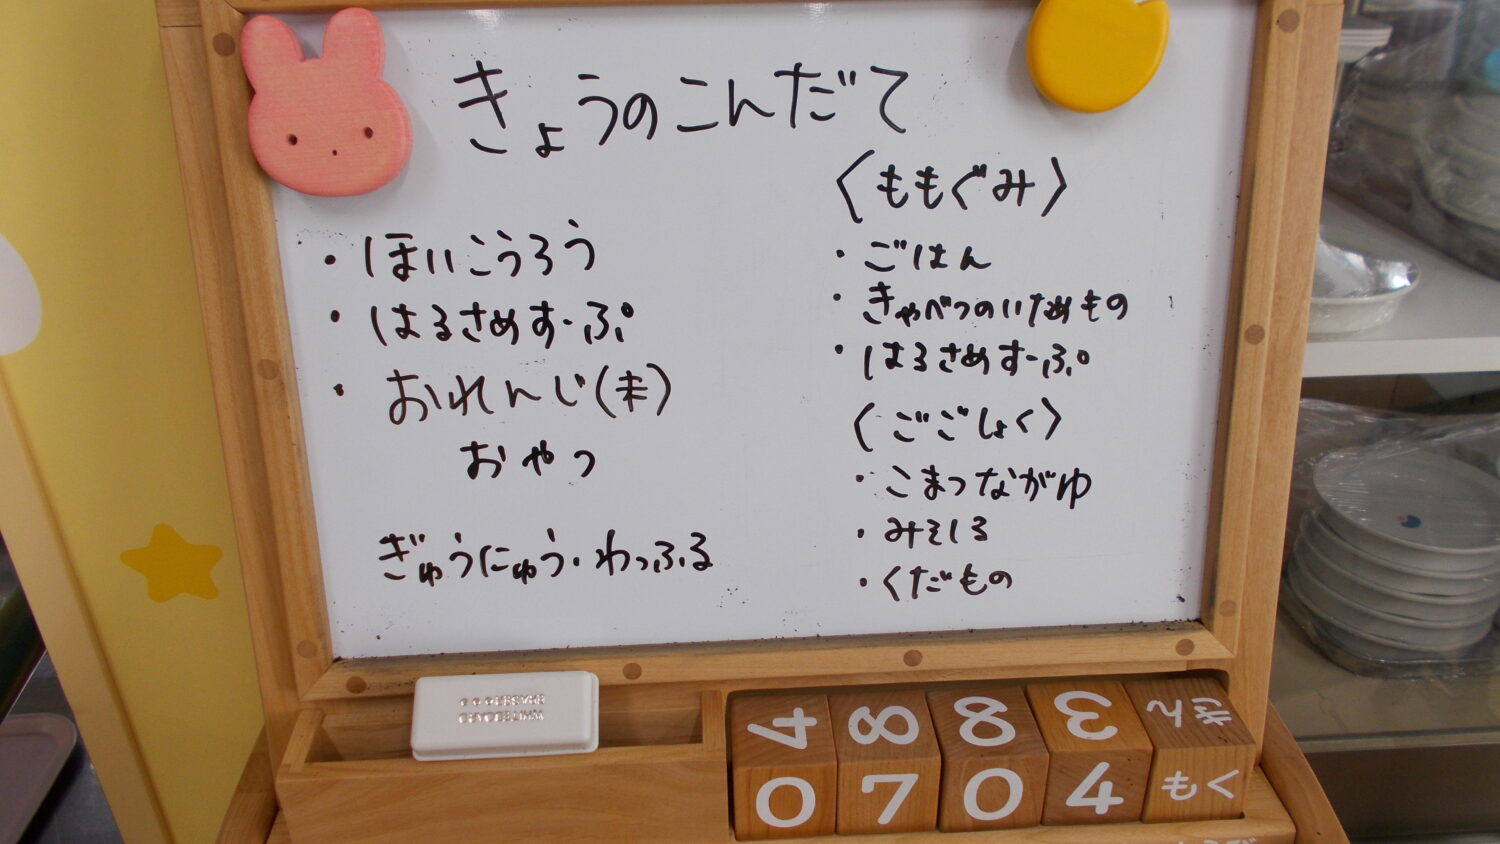 きょうのこんだて
・ほいこうろう
・はるさめすーぷ
・おれんじ(未)
おやつ
ぎゅうにゅう・わっふる
〈ももぐみ〉
・ごはん
・きゃべつのいためもの
・はるさめすーぷ
〈ごごしょく〉
・こまつながゆ
・みそしる
・くだもの
WHITEBOARD
4 8 8 3 きん
0 7 0 4 もく